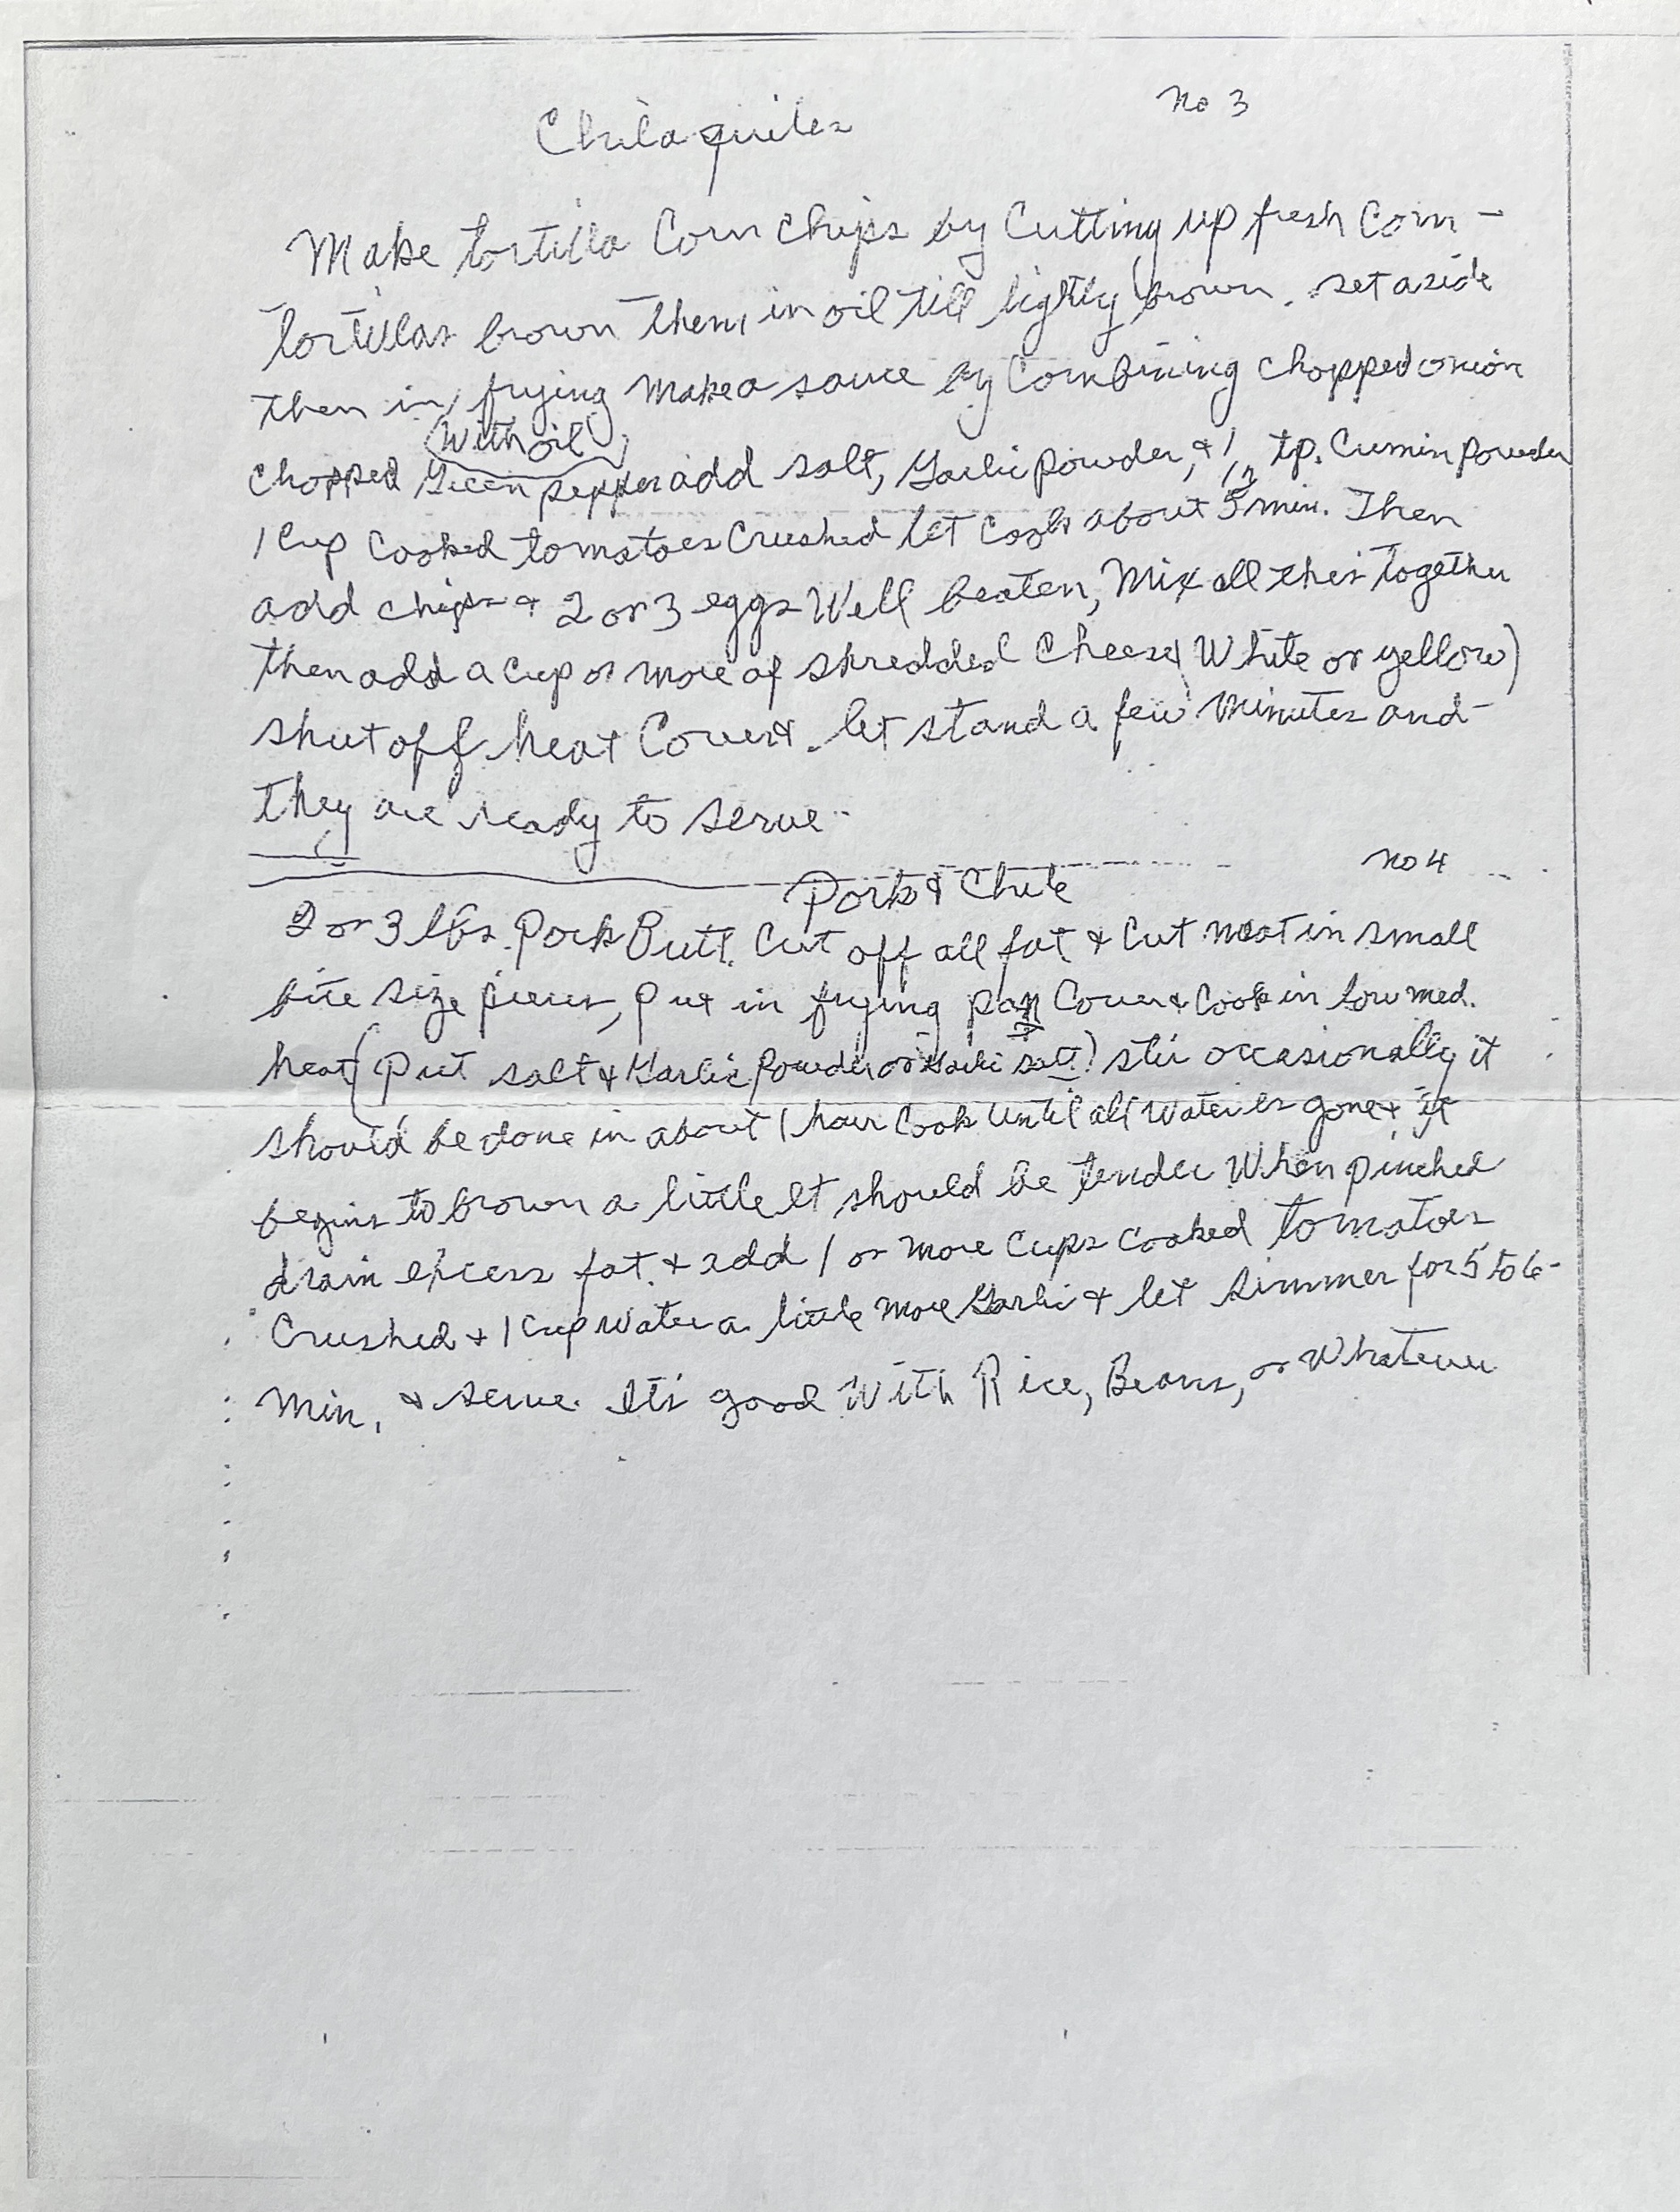 Chilaquiles
no 3
Make tortilla Corn Chips by Cutting up fresh Corn -
tortillas brown them in oil till lightly brown. set aside
then in frying make a sauce by Combining chopped onion
With oil
chopped Green pepper add salt, Garlic Powder, & 1/2 tp. Cumin Powder
1 Cup Cooked tomatoes Crushed let Cook about 5 min. Then
add chips & 2 or 3 eggs Well beaten, Mix all this together
then add a Cup or more of shredded Cheese (White or yellow)
shut off heat Cover & let stand a few minutes and -
they are ready to serve -
no 4
Pork & Chile
2 or 3 lbs. Pork Butt. Cut off all fat & Cut meat in small
bite size pieces, Put in frying pan Cover & Cook in low med.
heat (Put salt & Garlic Powder or Garlic salt) stir occasionally it
should be done in about 1 hour Cook Until all Water is gone & it
begins to brown a little It should be tender When pinched
drain excess fat. & add 1 or more Cups Cooked tomatoes
Crushed & 1 Cup Water a little more Garlic & let simmer for 5 to 6 -
Min, & serve. It's good With Rice, Beans, or Whatever